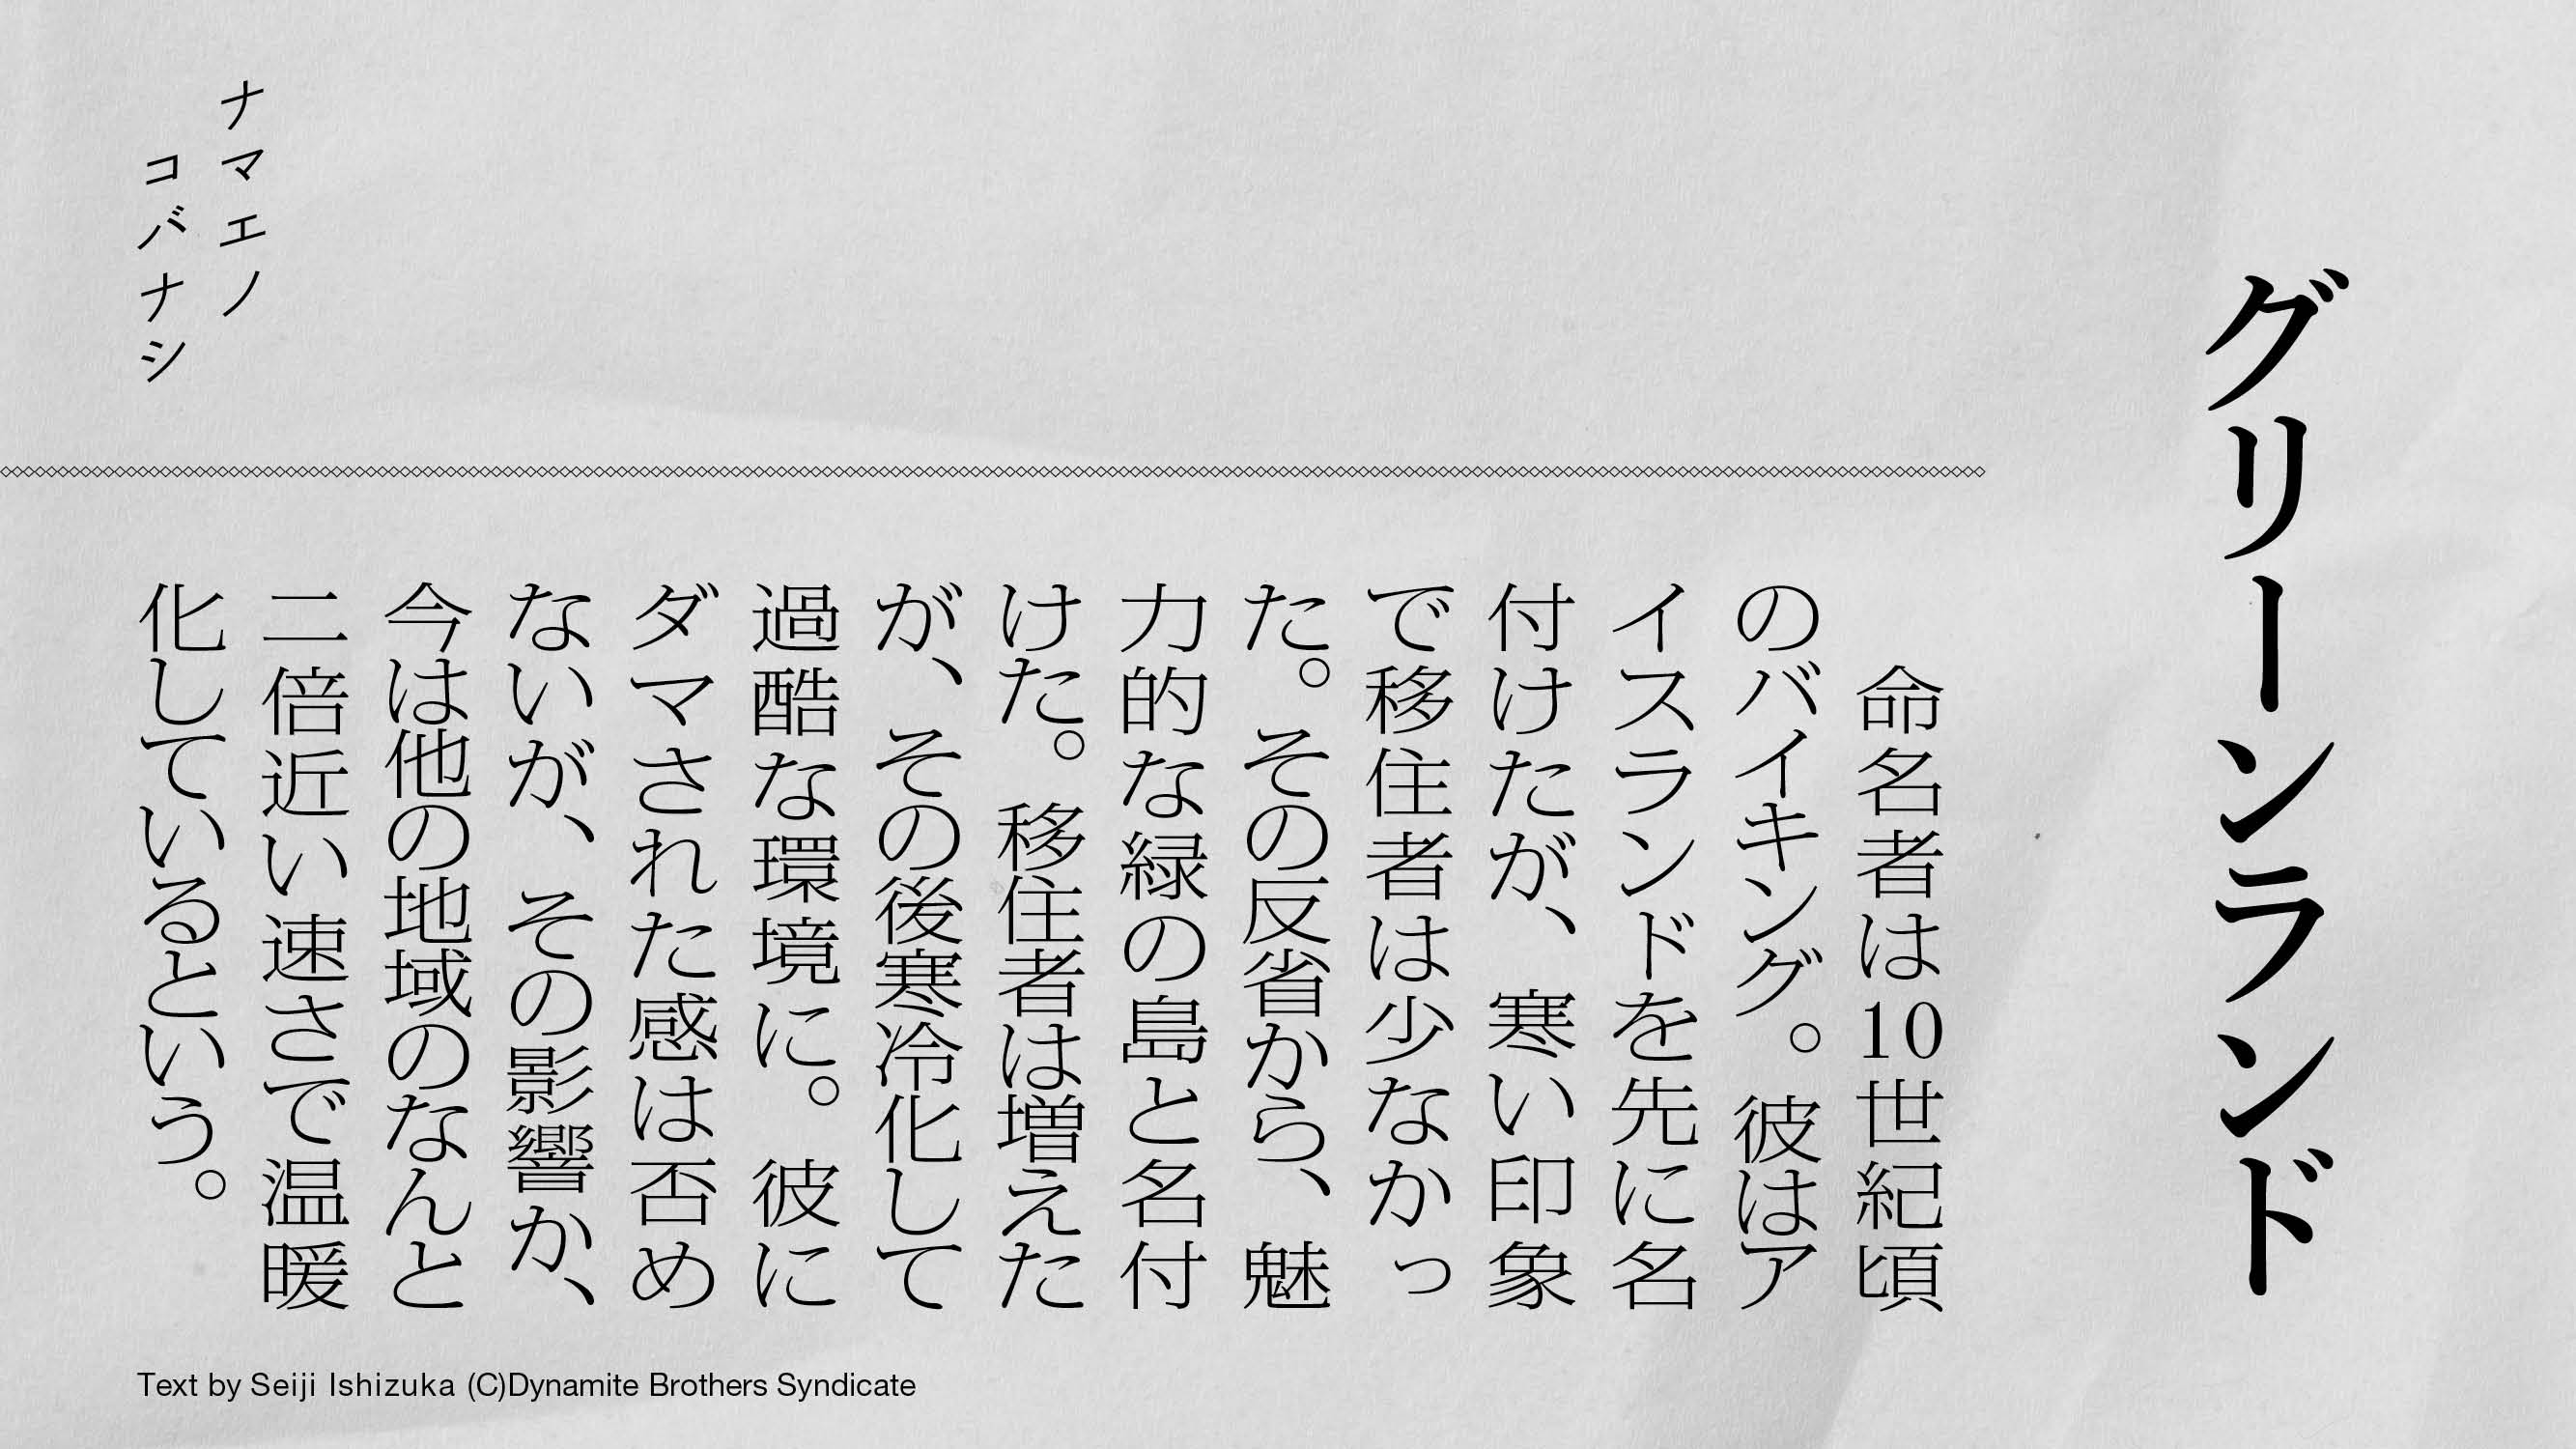 グリーンランド
命名者は10世紀頃
のバイキング。彼はア
イスランドを先に名
付けたが、寒い印象
で移住者は少なかっ
た。その反省から、魅
力的な緑の島と名付
けた。移住者は増えた
が、その後寒冷化して
過酷な環境に。彼に
ダマされた感は否め
ないが、その影響か、
今は他の地域のなんと
二倍近い速さで温暖
化しているという。
ナマエノ
コバナシ
Text by Seiji Ishizuka (C)Dynamite Brothers Syndicate